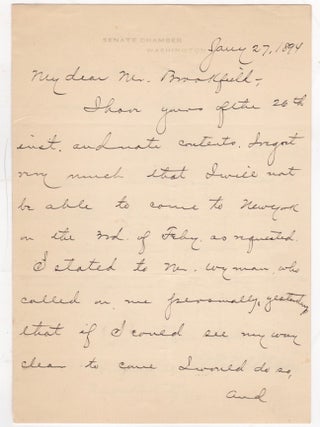 SENATE CHAMBER
WASHINGTON
Jany 27, 1894
My dear Mr. Brookfield,
I have yours of the 26th
inst. and note contents. I regret
very much that I will not
be able to come to New York
on the 3rd. of Feby. as requested.
I stated to Mr. Wyman, who
called on me personally, yesterday
that if I could see my way
clear to come I would do so,
and